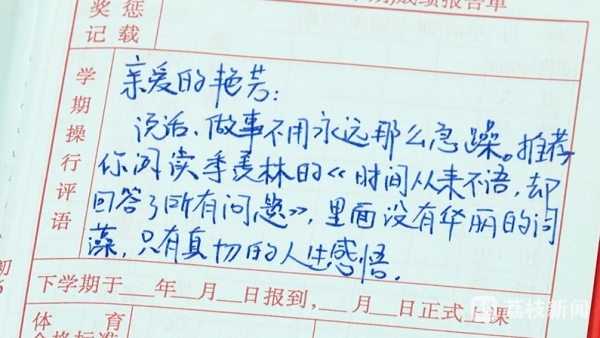 成绩报告单
奖惩
记载
学期操行评语
亲爱的艳芳：
说话、做事不用永远那么急躁。推荐
你阅读季羡林的《时间从来不语，却
回答了所有问题》，里面没有华丽的词
藻，只有真切的人生感悟。
下学期于__年__月__日报到，__月__日正式上课
体 育
合格标准
初
荔枝新闻